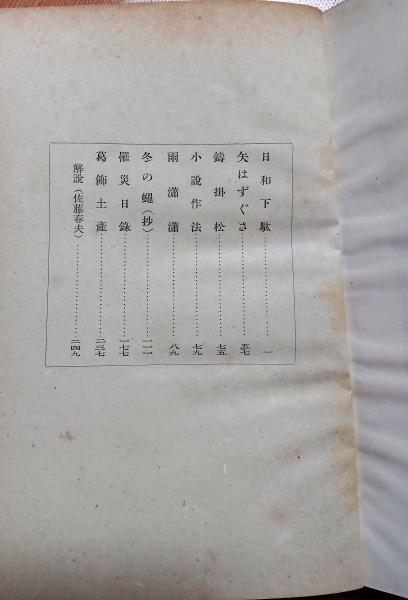 日和下駄………………一
矢はずぐさ………………五七
鑄掛松………………七五
小說作法………………七九
雨瀟瀟………………八九
冬の蠅（抄）………………一一一
罹災日錄………………一七七
葛飾土產………………二三七
解說（佐藤春夫）………………二四九